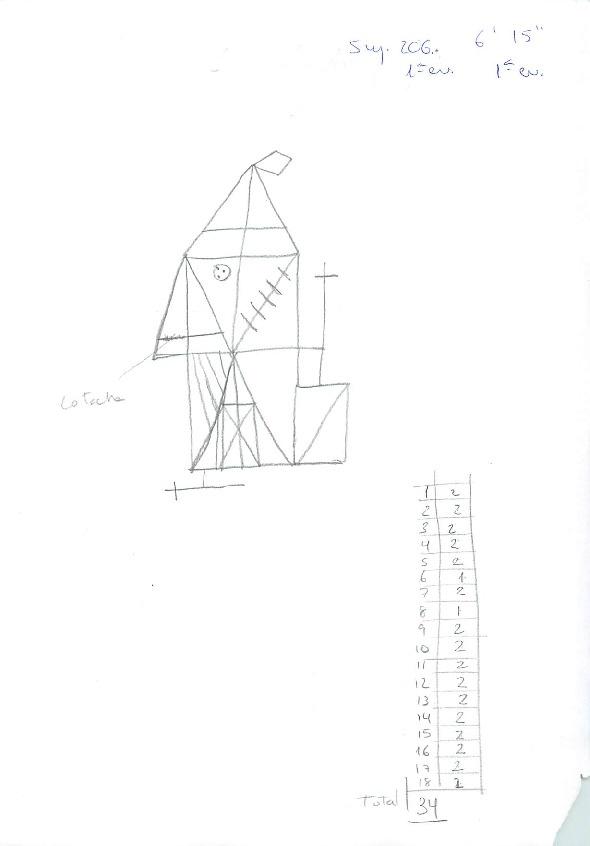 Suj. 206. 6' 15"
1ª ev. 1ª ev.
Lo tacha
1 2
2 2
3 2
4 2
5 2
6 1
7 2
8 1
9 2
10 2
11 2
12 2
13 2
14 2
15 2
16 2
17 2
18 2
Total 34